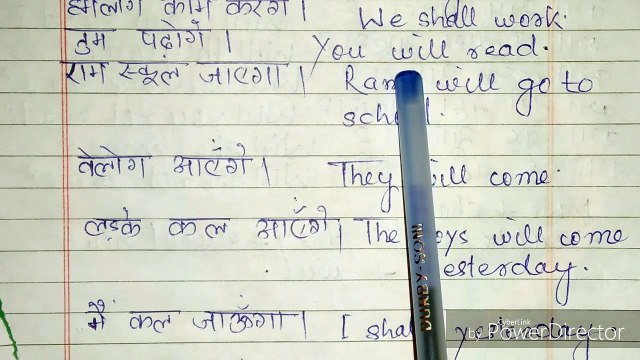 हमलोग काम करेंगे। We shall work.
तुम पढ़ोगे। You will read.
राम स्कूल जाएगा। Ram will go to
school.
वेलोग आएँगे। They will come.
लड़के कल आएँगे। The boys will come
yesterday.
मैं कल जाऊँगा। I shall yesterday
MONDAY-SONI
by CyberLink
PowerDirector